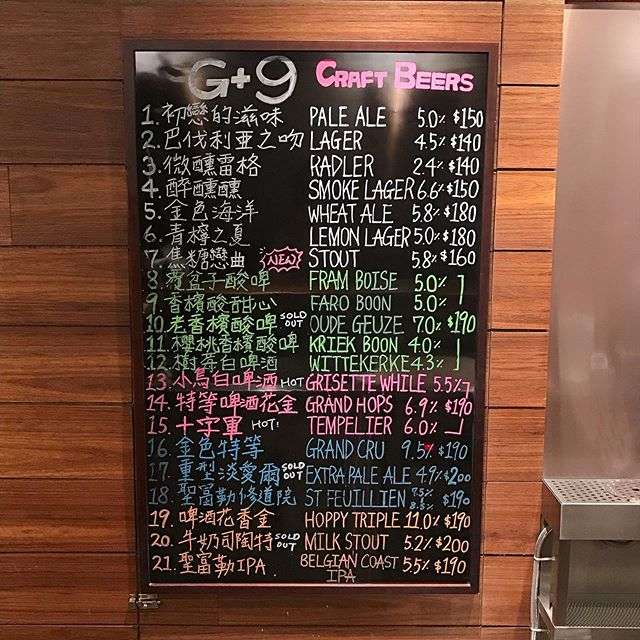 G+9 CRAFT BEERS
1. 初戀的滋味 PALE ALE 5.0% $150
2. 巴伐利亞之吻 LAGER 4.5% $140
3. 微醺雷格 RADLER 2.4% $140
4. 醉醺醺 SMOKE LAGER 6.6% $150
5. 金色海洋 WHEAT ALE 5.8% $180
6. 青檸之夏 LEMON LAGER 5.0% $180
7. 焦糖戀曲 NEW STOUT 5.8% $160
8. 覆盆子酸啤 FRAM BOISE 5.0%
9. 香檳酸甜心 FARO BOON 5.0%
10. 老香檳酸啤 SOLD OUT OUDE GEUZE 7.0% $190
11. 櫻桃香檳酸啤 KRIEK BOON 4.0%
12. 樹莓白啤酒 WITTEKERKE 4.3%
13. 小鳥白啤酒 HOT GRISETTE WHILE 5.5%
14. 特等啤酒花金 GRAND HOPS 6.9% $190
15. 十字軍 HOT! TEMPELIER 6.0%
16. 金色特等 GRAND CRU 9.5% $190
17. 重型淡愛爾 SOLD OUT EXTRA PALE ALE 4.9% $200
18. 聖富勒修道院 ST FEUILLIEN 7.5% 8.5% $190
19. 啤酒花香金 HOPPY TRIPLE 11.0% $190
20. 牛奶司陶特 SOLD OUT MILK STOUT 5.2% $200
21. 聖富勒IPA BELGIAN COAST IPA 5.5% $190